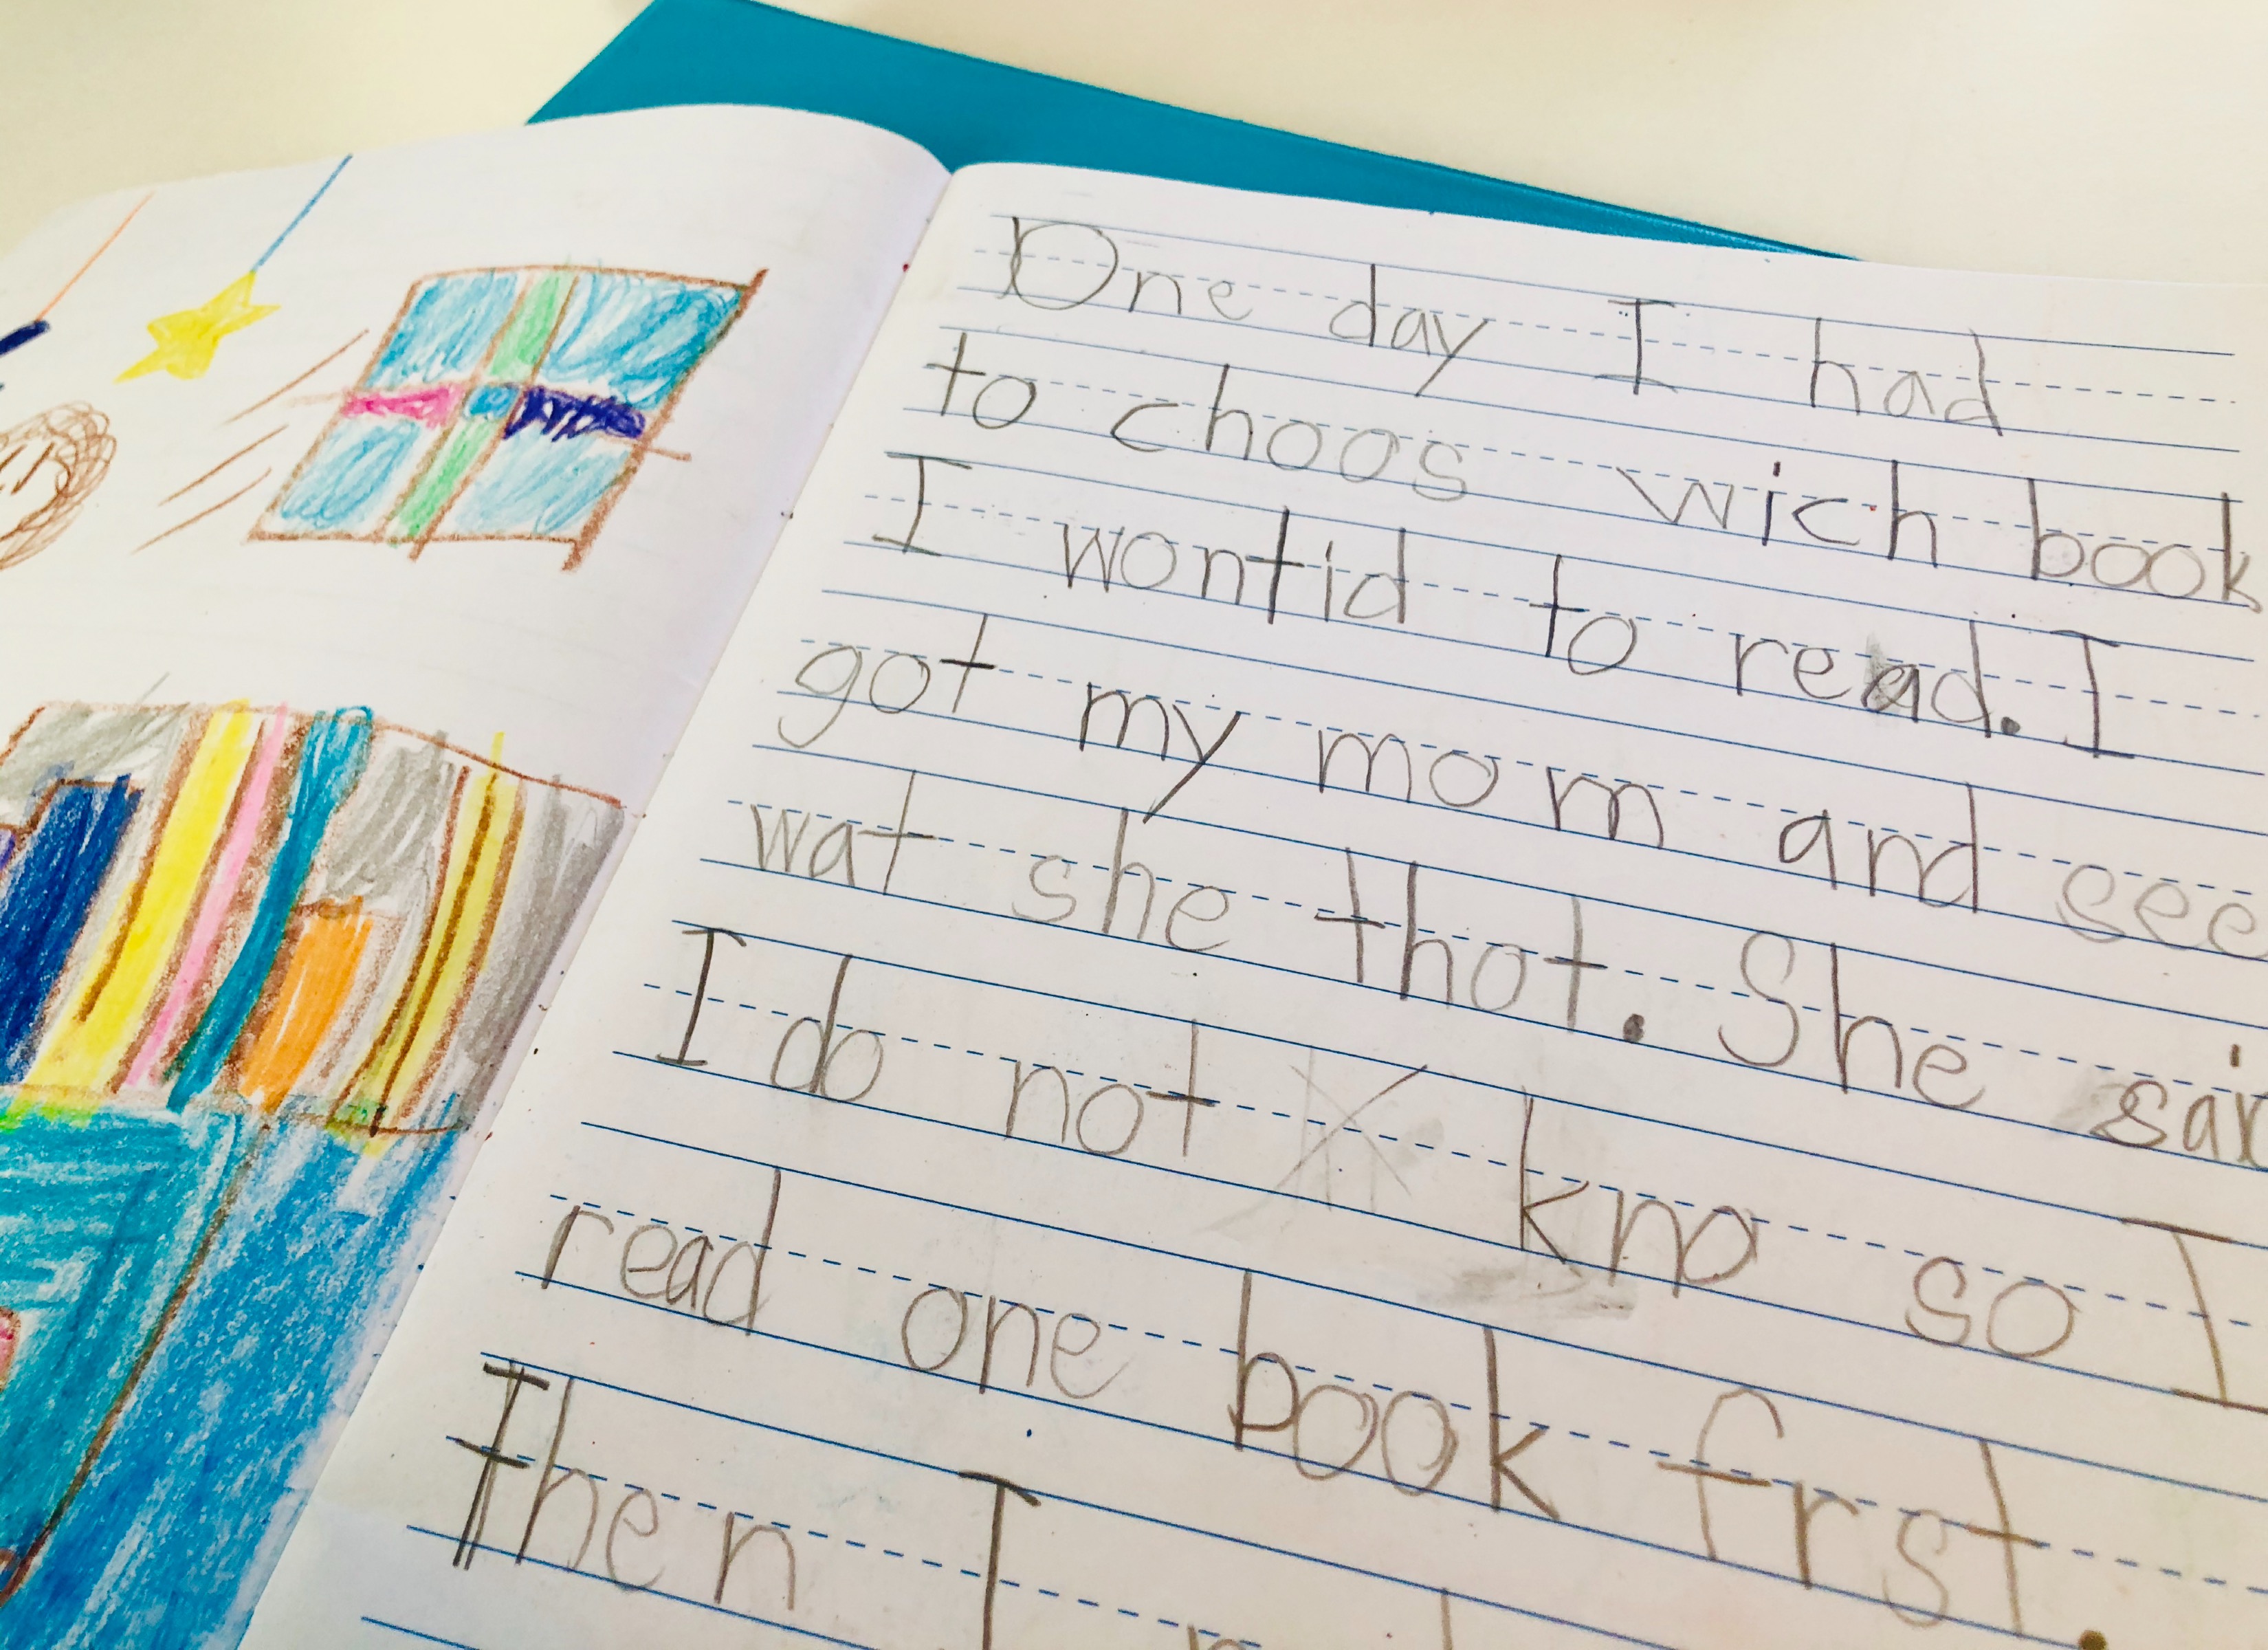 One day I had
to choos wich book
I wontid to read. I
got my mom and see
wat she thot. She
I do not kno so I
read one book frst.
Then I